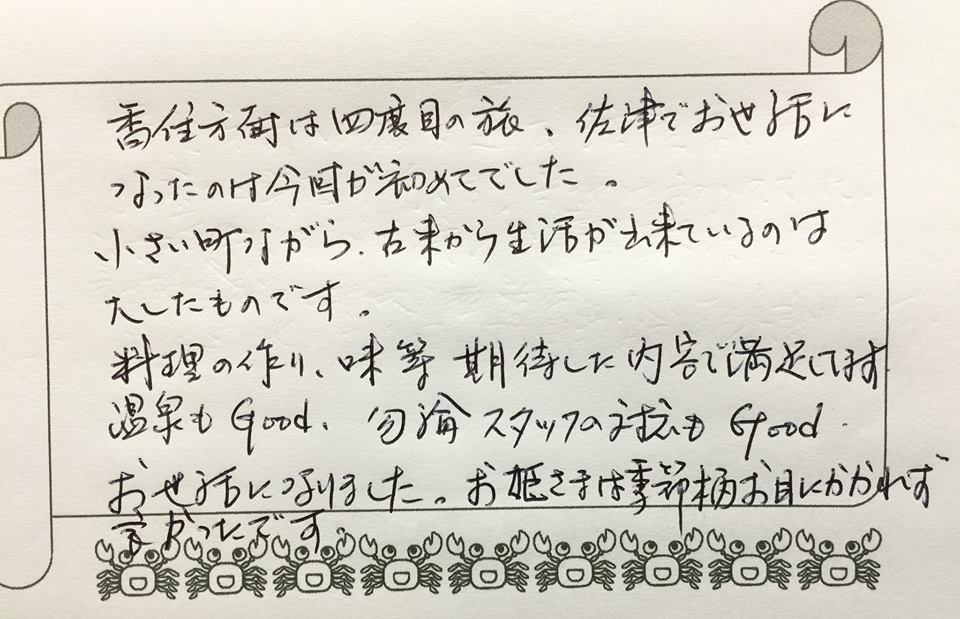 香住方面は四度目の旅、佐津でお世話に
なったのは今回が初めてでした。
小さい町ながら、古来から生活が出来ているのは
たしたものです。
料理の作り、味等 期待した内容で満足してます
温泉も Good、勿論 スタッフの対応も Good.
お世話になりました。お姫さまは季節柄お目にかかれず
かったです。